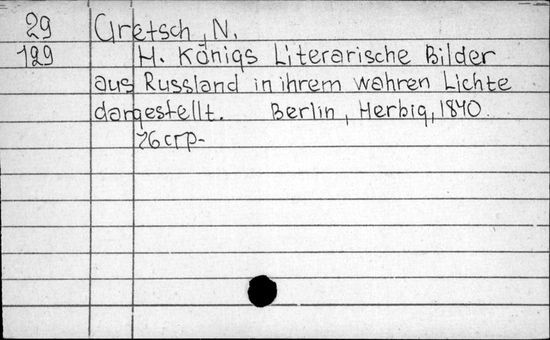 29 Gretsch, N.
199 H. Königs Literarische Bilder
aus Russland in ihrem wahren Lichte
dargestellt. Berlin, Herbig, 1840.
76 стр-